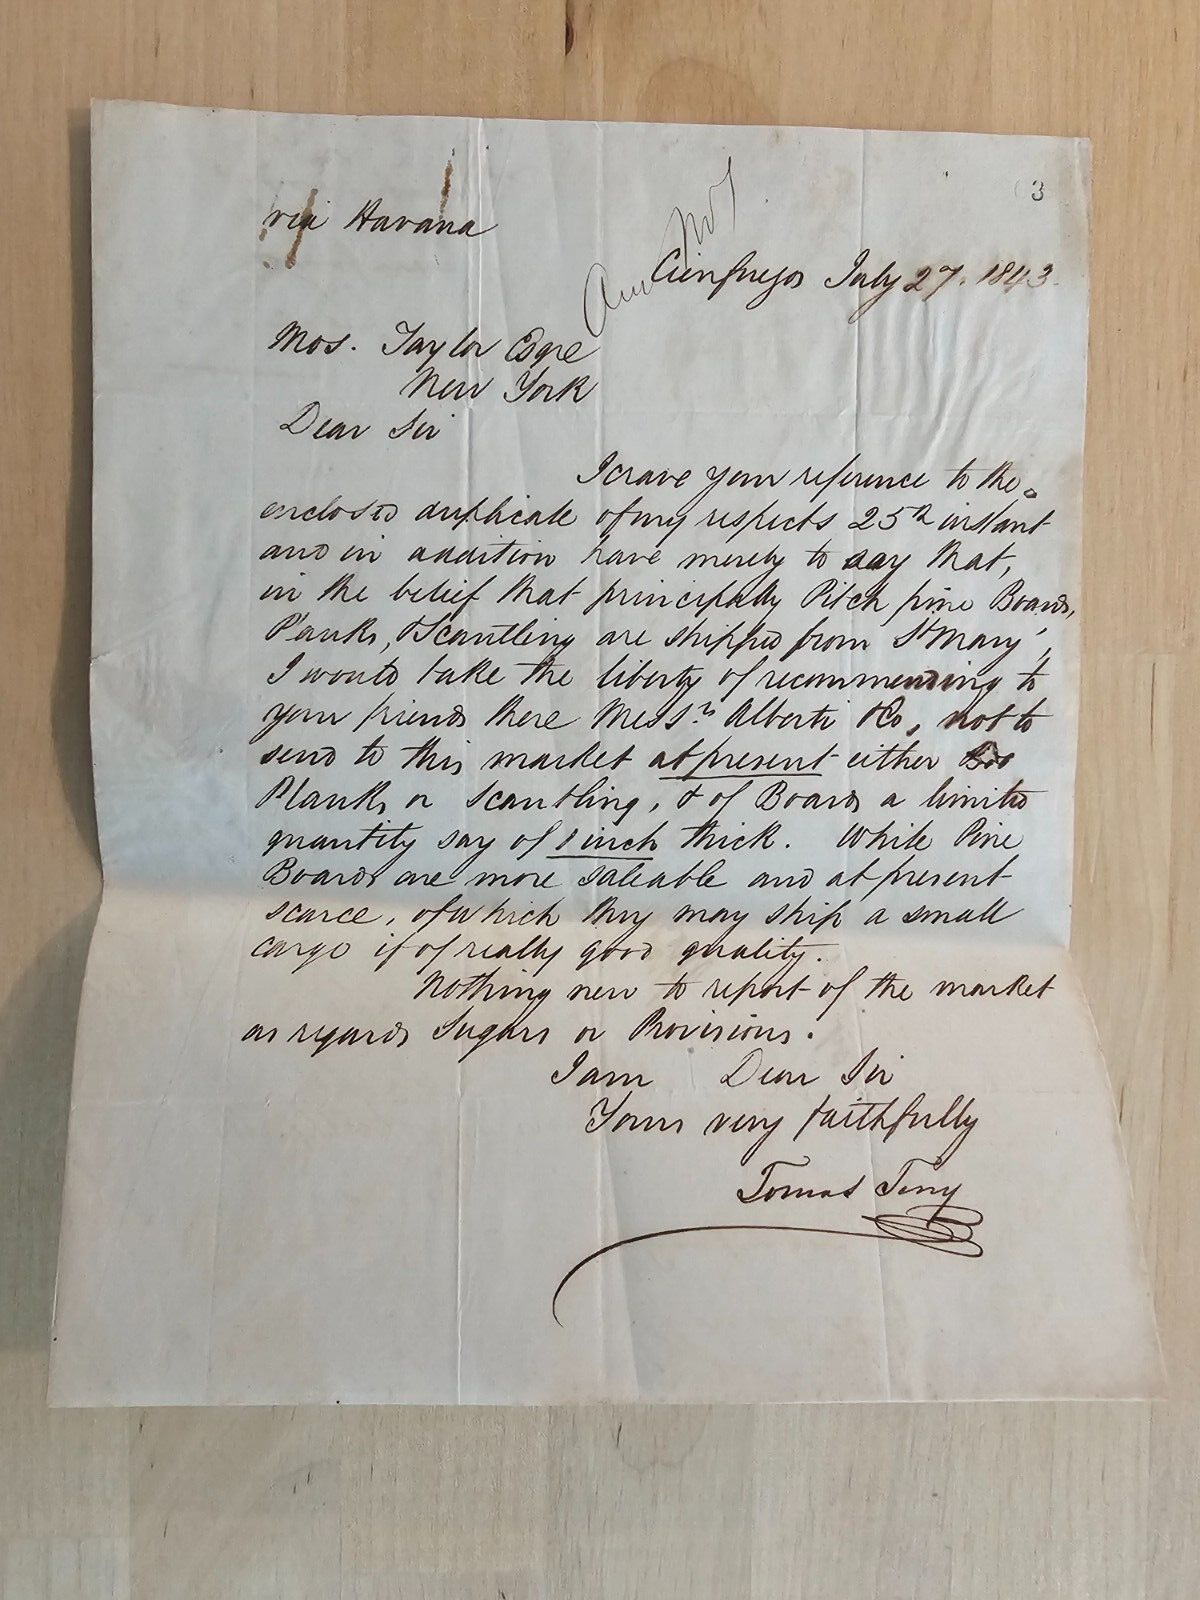 3
via Havana
Cienfuegos July 27. 1843.
Mos. Taylor Esqre
New York
Dear Sir
I crave your reference to the
enclosed duplicate of my respects 25th instant
and in addition have merely to say that,
in the belief that principally Pitch pine Boards,
Planks, & Scantling are shipped from St Mary's,
I would take the liberty of recommending to
your friends there Messrs Alberti & Co, not to
send to this market at present either
Planks or Scantling, & of Boards a limited
quantity say of 1 inch thick. White Pine
Boards are more saleable and at present
scarce, of which they may ship a small
cargo if of really good quality.
Nothing new to report of the market
as regards Sugars or Provisions.
I am Dear Sir
Yours very faithfully
Tomas Terry